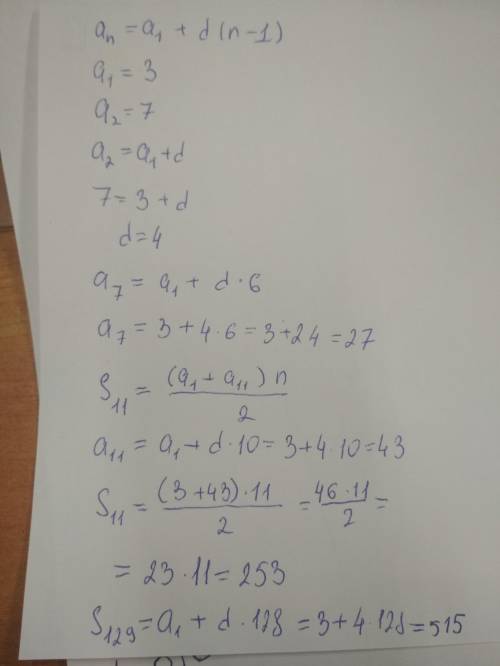 aₙ = a₁ + d (n-1)
a₁ = 3
a₂ = 7
a₂ = a₁ + d
7 = 3 + d
d = 4
a₇ = a₁ + d · 6
a₇ = 3 + 4 · 6 = 3 + 24 = 27
S₁₁ = (a₁ + a₁₁) n / 2
a₁₁ = a₁ + d · 10 = 3 + 4 · 10 = 43
S₁₁ = (3 + 43) · 11 / 2 = 46 · 11 / 2 =
= 23 · 11 = 253
S₁₂₉ = a₁ + d · 128 = 3 + 4 · 128 = 515